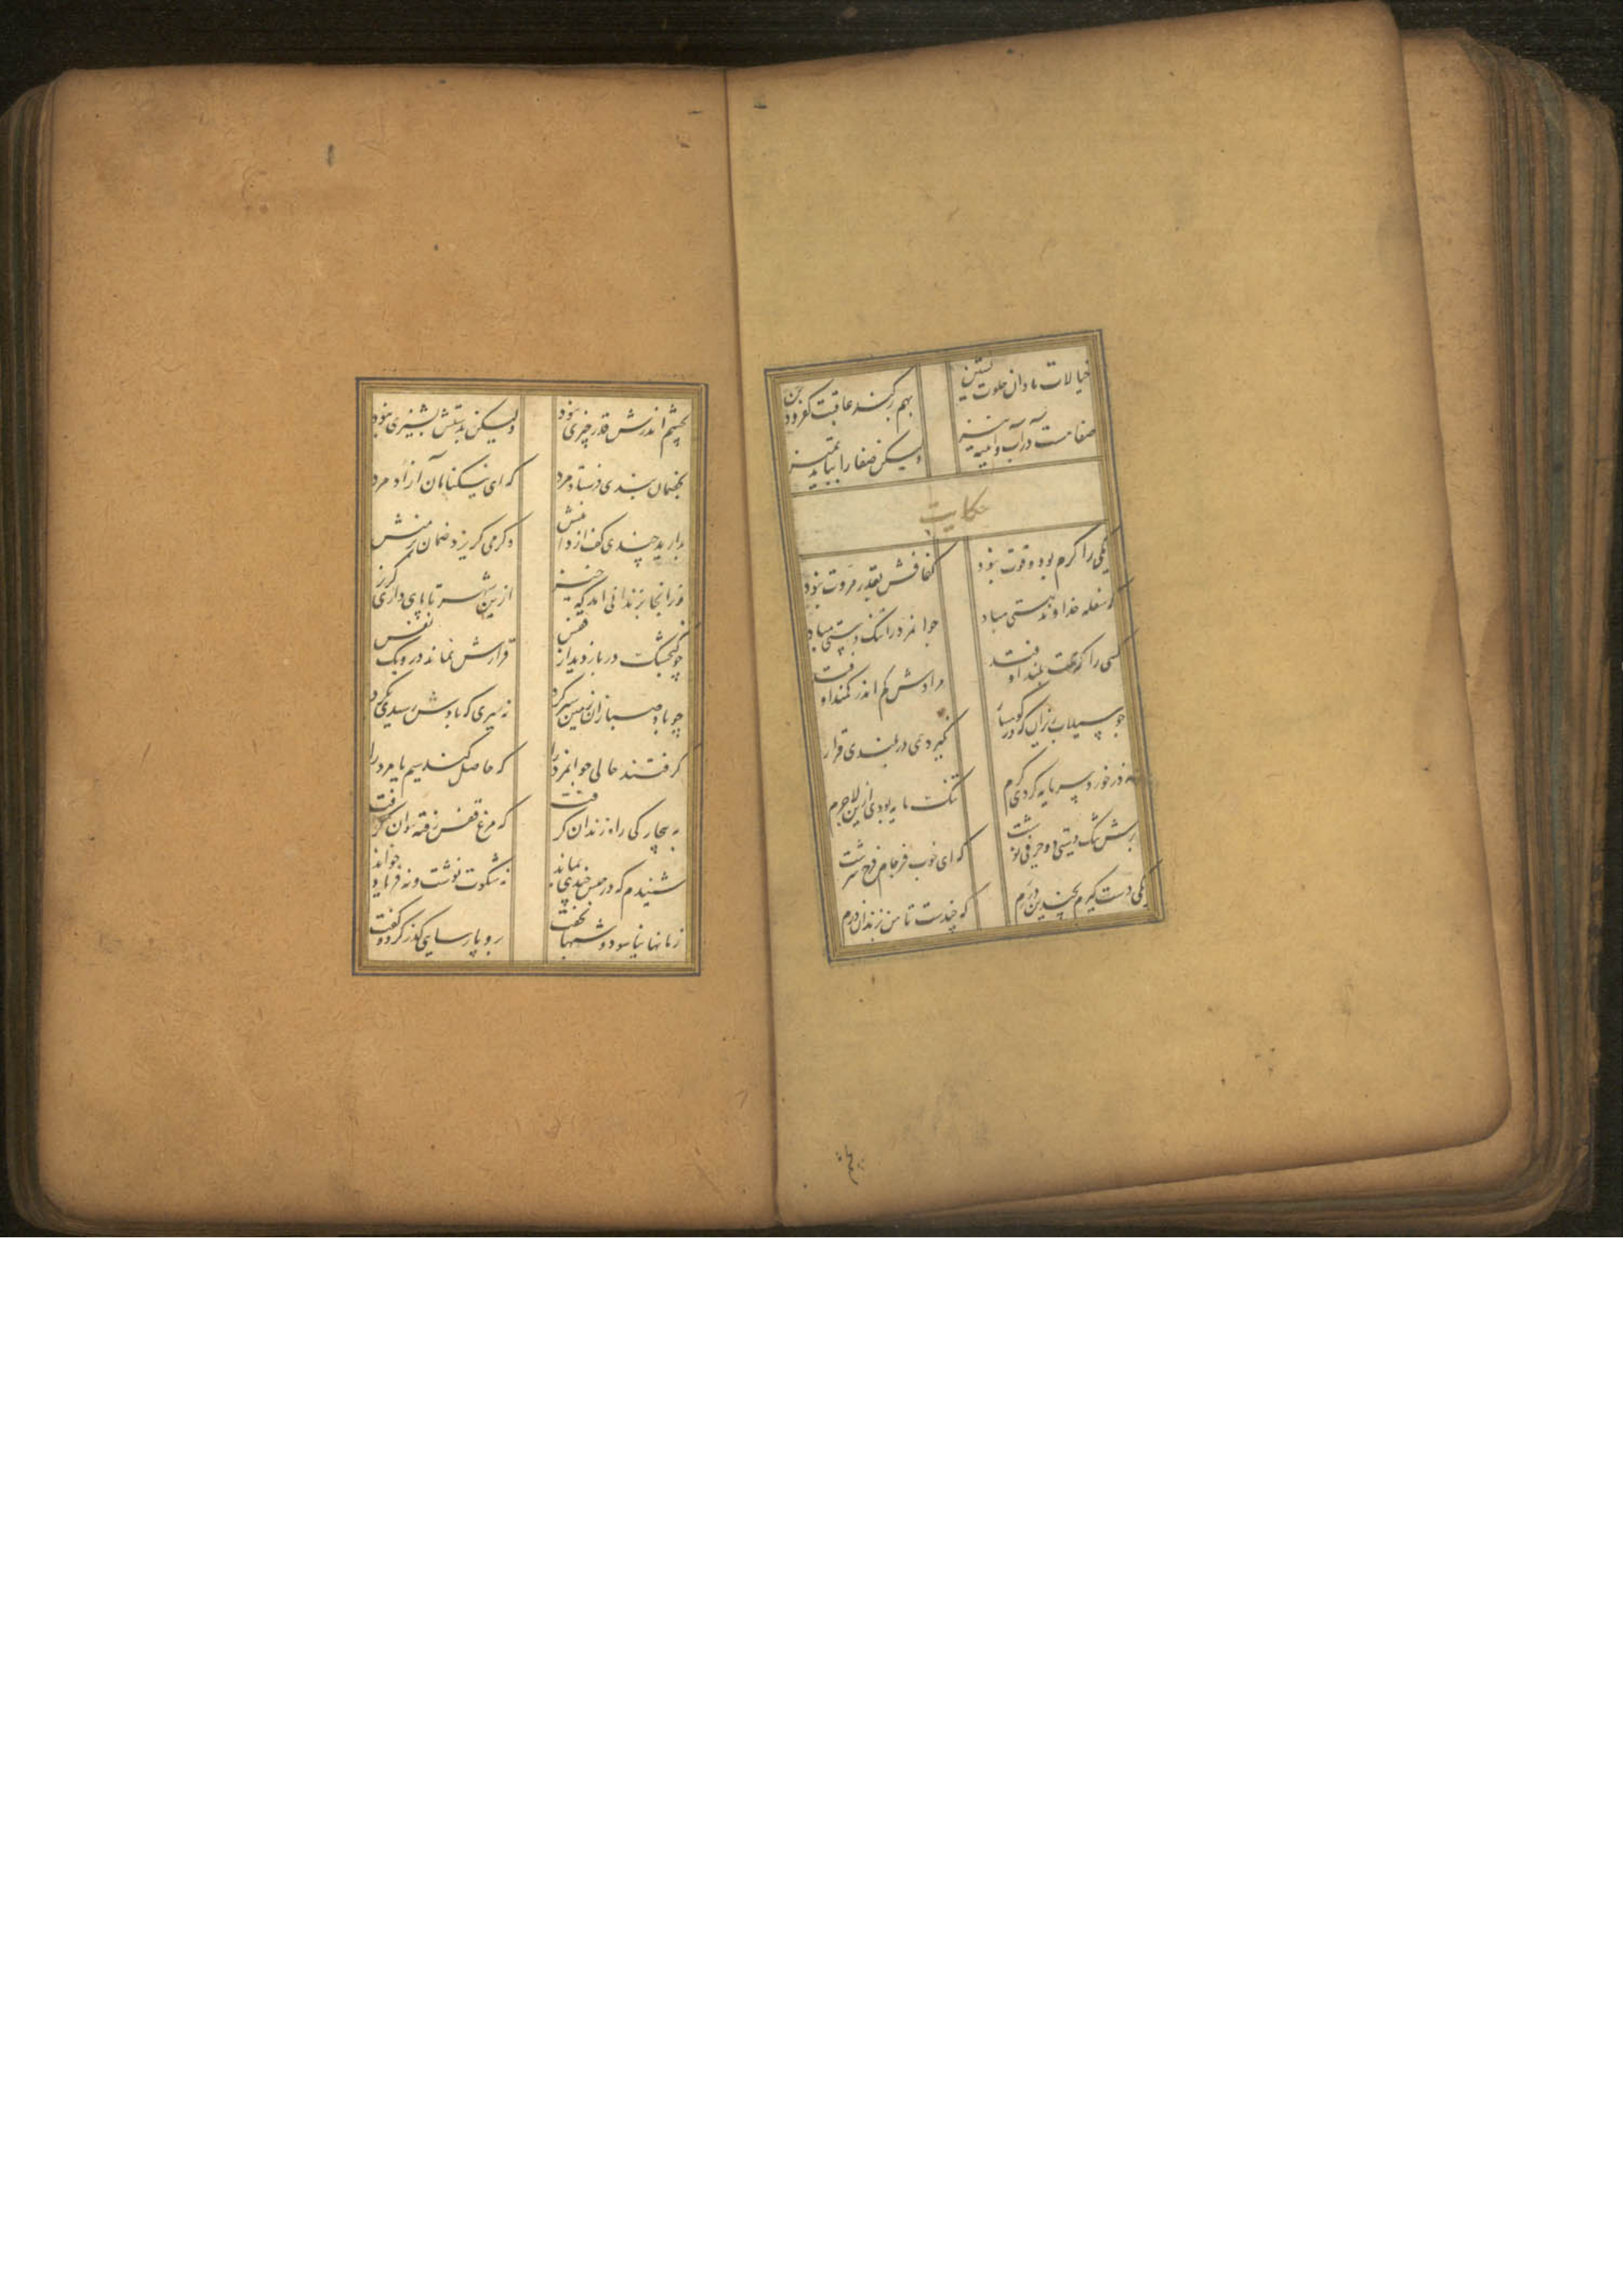 خیالات نادان خلوت نشین
بهم برکند عاقبت کفر و دین
صفاییست در آب و آیینه نیز
ولیکن صفا را بباید تمیز
حکایت
یکی را کرم بود و قوت نبود
کفافش بقدر مروت نبود
که سفله خداوند هستی مباد
جوانمرد را تنگ دستی مباد
کسی را که همت بلند اوفتد
مرادش کم اندر کمند اوفتد
چو سیلاب ریزان که در کوهسار
نگیرد همی در بلندی قرار
نه در خورد سرمایه کردی کرم
تنک مایه بودی ازین لاجرم
برش تنگ دستی دو حرفی نوشت
که ای خوب فرجام فرخ سرشت
یکی دست گیرم بچندین درم
که چندست تا من بزندان درم
بچشم اندرش قدر چیزی نبود
ولیکن بدستش پشیزی نبود
بخصمان بندی فرستاد مرد
که ای نیکنامان آزاد مرد
بدارید چندی کف از دامنش
و گر می گریزد ضمان بر منش
وز آنجا بزندانی آمد که خیز
ازین شهر تا پای داری گریز
چو گنجشک در باز دید از قفس
قرارش نماند در و یک نفس
چو باد صبا زان زمین سیر کرد
نه سیری که بادش رسیدی بگرد
گرفتند حالی جوانمرد را
که حاصل کنند سیم یا مرد را
به بیچارگی راه زندان گرفت
که مرغ قفس رفته نتوان گرفت
شنیدم که در حبس چندی بماند
نه شکوت نوشت و نه فریاد خواند
زمانها نیاسود و شبها نخفت
برو پارسایی گذر کرد و گفت